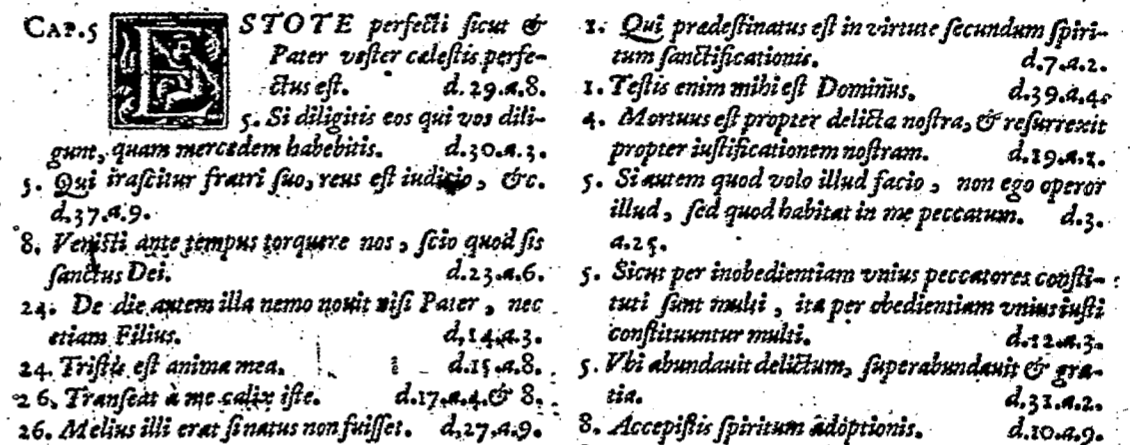 CAP.5 ESTOTE perfecti ſicut &
Pater veſter cæleſtis perfe-
ctus eſt. d.29.a.8.
5. Si diligitis eos qui vos dili-
gunt, quam mercedem habebitis. d.30.a.3.
5. Qui iraſcitur fratri ſuo, reus eſt iudicio, &c.
d.37.a.9.
8. Veniſti ante tempus torquere nos, ſcio quod ſis
ſanctus Dei. d.23.a.6.
24. De die autem illa nemo nouit niſi Pater, nec
etiam Filius. d.14.a.3.
24. Triſtis eſt anima mea. d.15.a.8.
26. Tranſeat à me calix iſte. d.17.a.4.& 8.
26. Melius illi erat ſi natus non fuiſſet. d.27.a.9.
1. Qui prædeſtinatus eſt in virtute ſecundum ſpiri-
tum ſanctificationis. d.7.a.2.
1. Teſtis enim mihi eſt Dominus. d.39.a.4.
4. Mortuus eſt propter delicta noſtra, & reſurrexit
propter iuſtificationem noſtram. d.19.a.1.
5. Si autem quod volo illud facio, non ego operor
illud, ſed quod habitat in me peccatum. d.3.
a.25.
5. Sicut per inobedientiam vnius peccatores conſti-
tuti ſunt multi, ita per obedientiam vnius iuſti
conſtituuntur multi. d.12.a.3.
5. Vbi abundauit delictum, ſuperabundauit & gra-
tia. d.31.a.2.
8. Accepiſtis ſpiritum adoptionis. d.10.a.9.